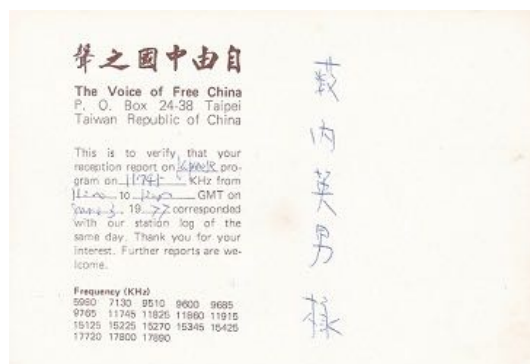 自由中國之聲
The Voice of Free China
P. O. Box 24-38 Taipei
Taiwan Republic of China
This is to verify that your
reception report on pro-
gram on 11745 KHz from
to GMT on
19 77 corresponded
with our station log of the
same day. Thank you for your
interest. Further reports are we-
lcome.
Frequency (KHz)
5980 7130 9510 9600 9685
9765 11745 11825 11860 11915
15125 15225 15270 15345 15425
17720 17800 17890
内英男様